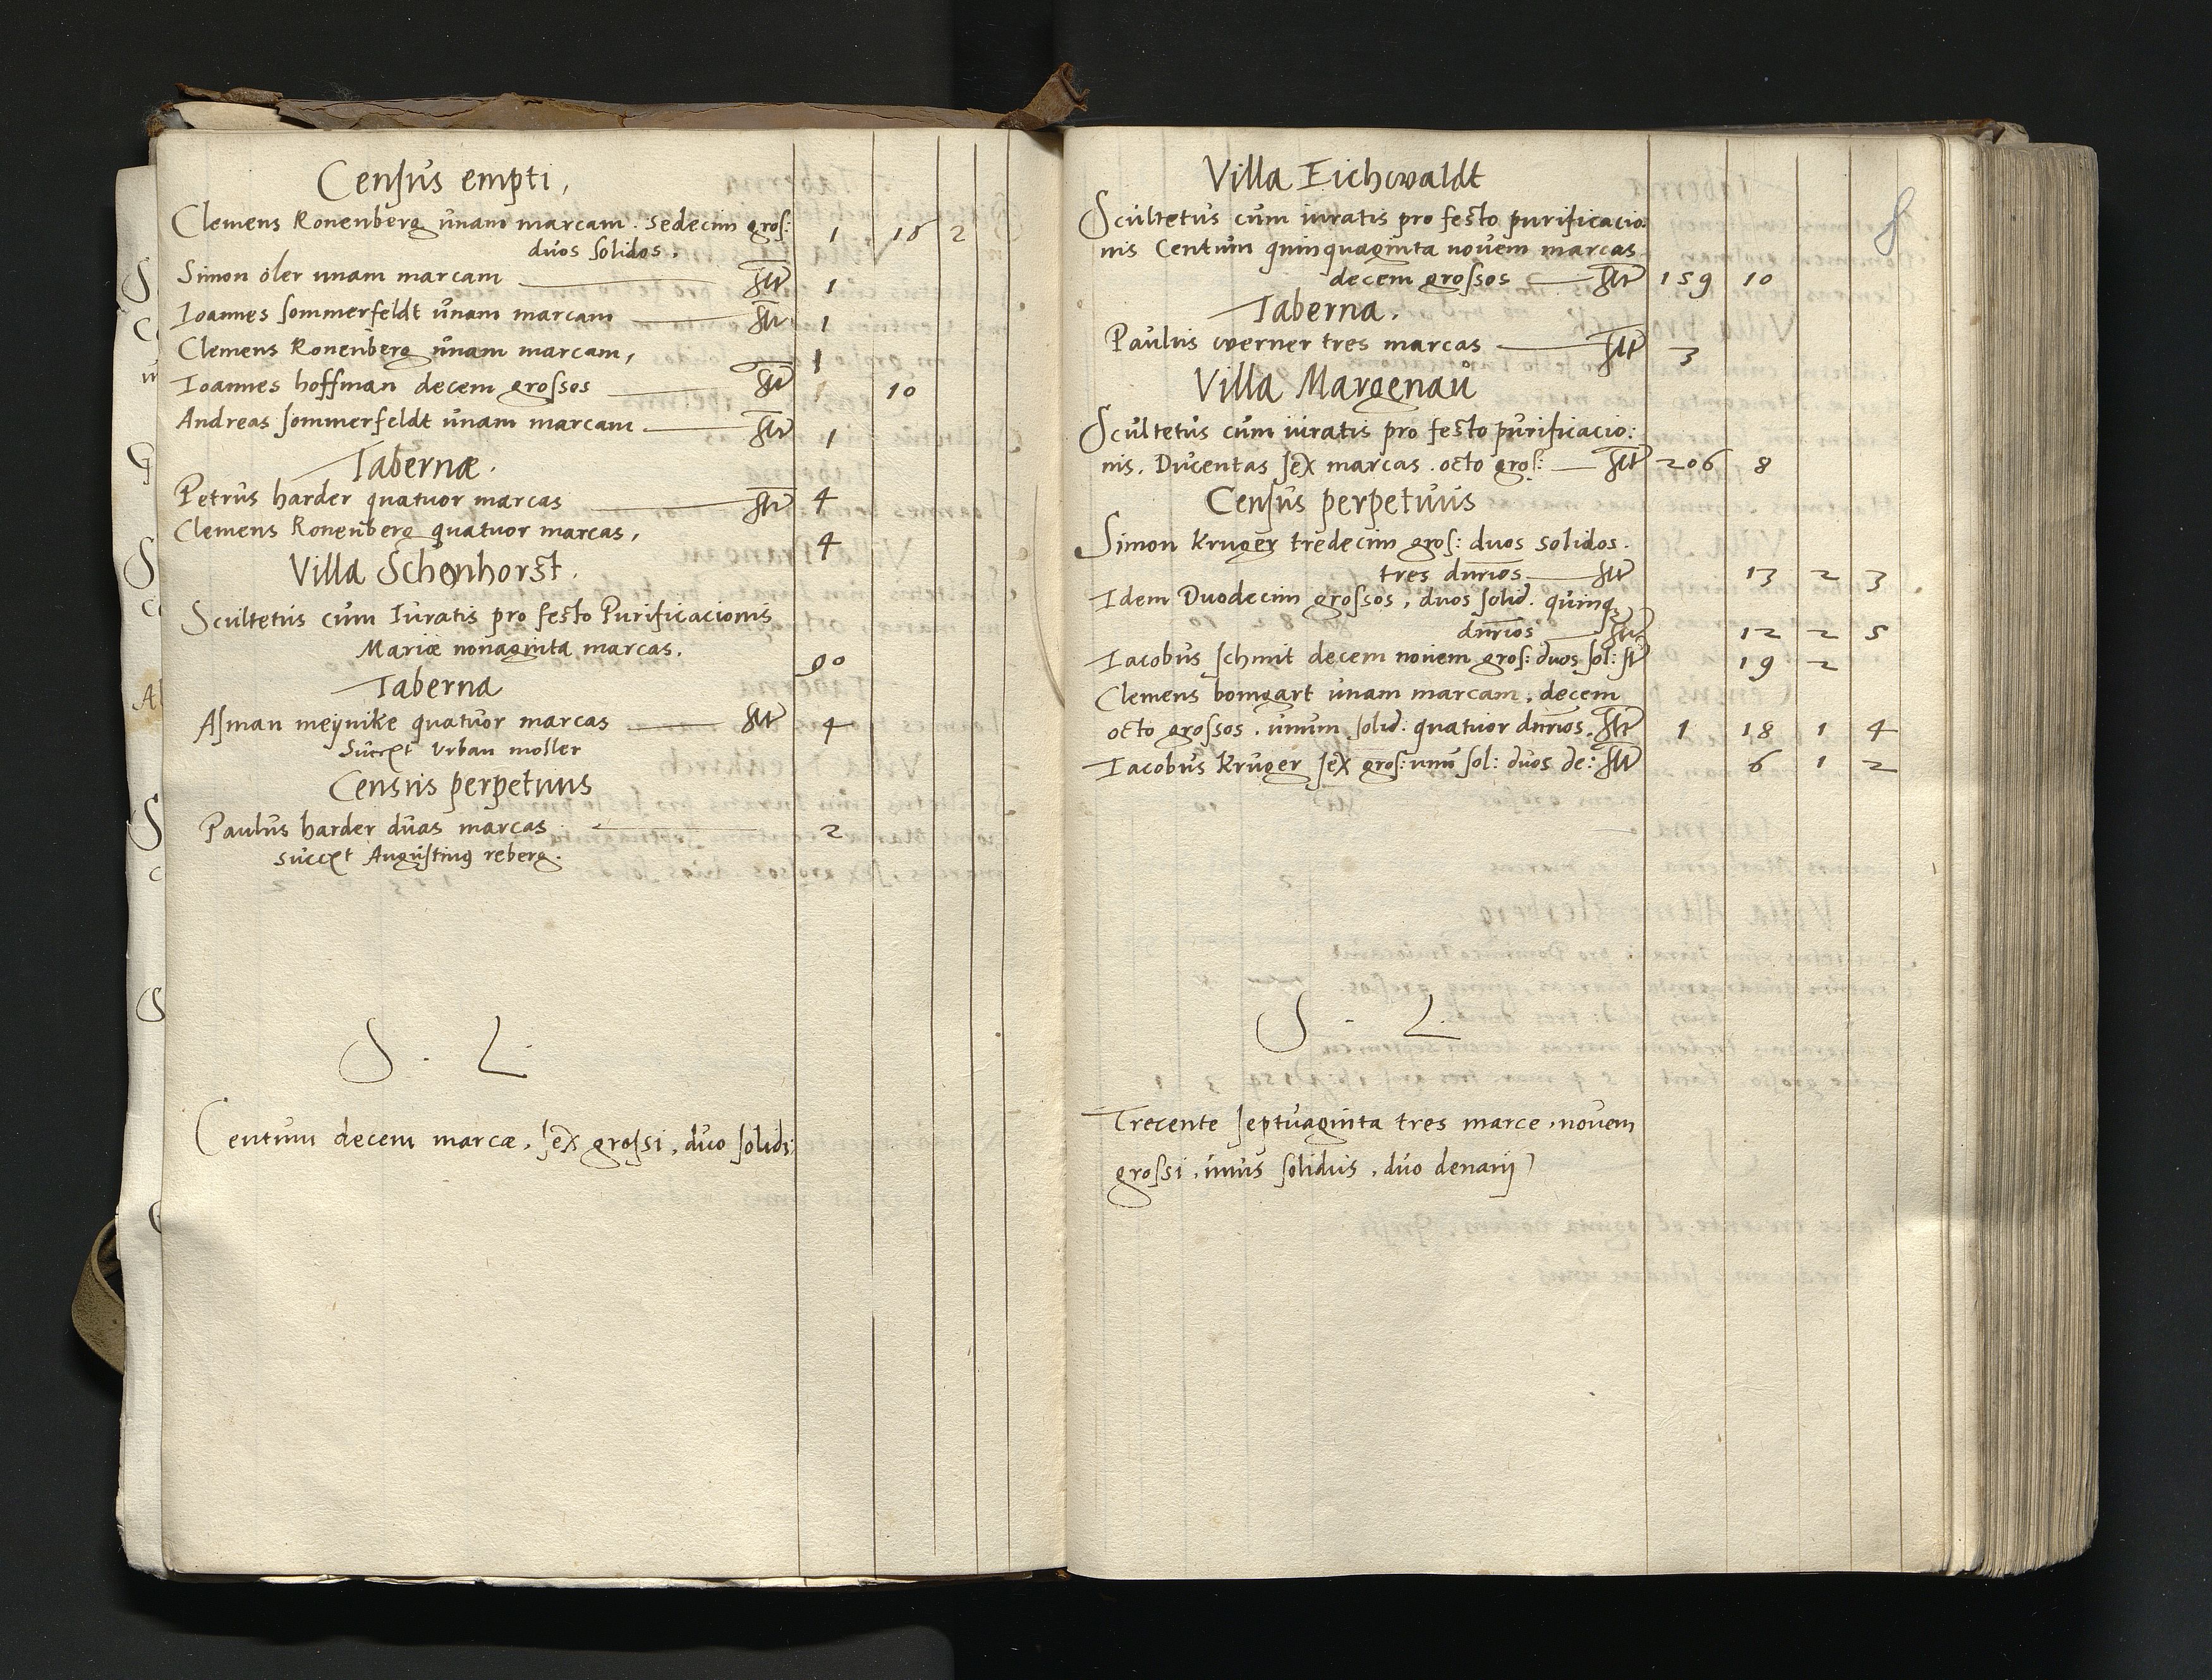 Census empti,
Clemens Ronenberg unam marcam. sedecim gros: 1 16 2
duos solidos.
Simon öler unam marcam 1
Ioannes sommerfeldt unam marcam 1
Clemens Ronenberg unam marcam, 1
Ioannes hoffman decem grossos 10
Andreas sommerfeldt unam marcam 1
Tabernæ.
Petrus harder quatuor marcas 4
Clemens Ronenberg quatuor marcas, 4
Villa Schonhorst.
Scultetus cum Iuratis pro festo Purificacionis
Mariæ nonaginta marcas. 90
Taberna
Asman meÿnike quatuor marcas 4
Urban moller
Census perpetuus
Paulus harder duas marcas 2
Augustinus reberg.
S. L.
Centum decem marcæ, sex grossi, duo solidi:
8
Villa Eichwaldt
Scultetus cum iuratis pro festo purificacio:
nis Centum quinquaginta novem marcas
decem grossos 159 10
Taberna.
Paulus werner tres marcas 3
Villa Margenau
Scultetus cum iuratis pro festo purificacio:
nis. Ducentas sex marcas. octo gros: 206 8
Census perpetuus
Simon Kruger tredecim gros: duos solidos.
tres dnrios 13 2 3
Idem Duodecim grossos, duos solid. quinq
dnrios 12 2 5
Iacobus schmit decem novem gros: duos sol: 19 2
Clemens bomgart unam marcam, decem
octo grossos. unum solid: quatuor dnrios. 1 18 1 4
Iacobus Kruger sex gros: unū sol: duos de: 6 1 2
S. L.
Trecente septuaginta tres marce, novem
grossi, unus solidus, duo denarij